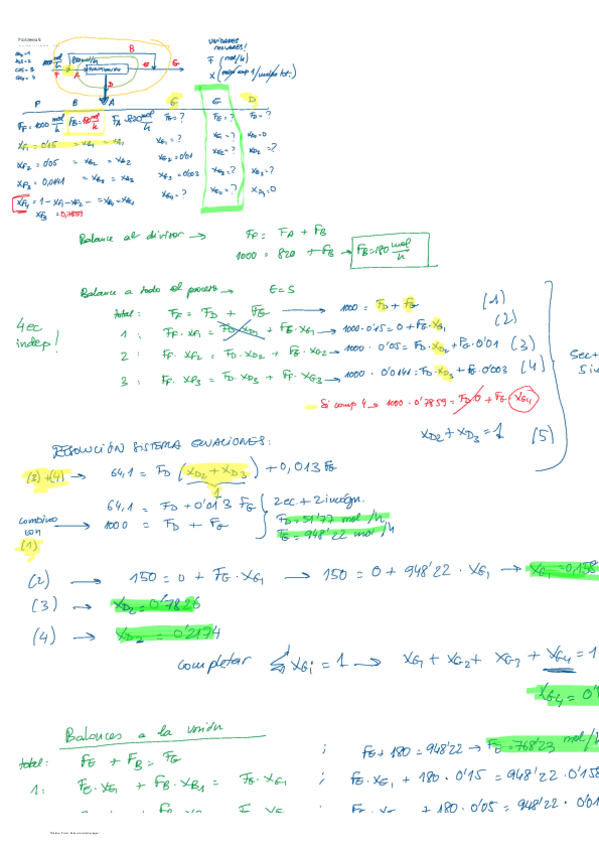 UNIDADES
MOLARES!
F (mol/h)
B
A
D
F B A G E D
F_F = 1000 mol/h F_B = 180 mol/h F_A = 820 mol/h F_G = ? F_E = ? F_D = ?
x_F1 = 0'15 = x_B1 = x_A1 x_G1 = ? x_E1 = ? x_D1 = 0
x_F2 = 0'05 = x_B2 = x_A2 x_G2 = 0'01 x_E2 = ? x_D2 = ?
x_F3 = 0,0141 = x_B3 = x_A3 x_G3 = 0'003 x_E3 = ? x_D3 = ?
x_F4 = 1 - x_F1 - x_F2 - = x_B4 = x_A4 x_G4 = ? x_E4 = ? x_D4 = 0
x_F3 = 0,7859
Balance al divisor → F_F = F_A + F_B
1000 = 820 + F_B → F_B = 180 mol/h
Balance a todo el proceso → E = S
4 ec indep!
total: F_F = F_D + F_G → 1000 = F_D + F_G (1)
1: F_F · x_F1 = F_D · x_D1 + F_G · x_G1 → 1000 · 0'15 = 0 + F_G · x_G1 (2)
2: F_F · x_F2 = F_D · x_D2 + F_G · x_G2 → 1000 · 0'05 = F_D · x_D2 + F_G · 0'01 (3)
3: F_F · x_F3 = F_D · x_D3 + F_F · x_G3 → 1000 · 0'0141 = F_D · x_D3 + F_G · 0'003 (4)
Si comp 4 → 1000 · 0'7859 = F_D · 0 + F_G · x_G4
x_D2 + x_D3 = 1 (5)
RESOLUCIÓN SISTEMA ECUACIONES:
(3)+(4) → 64,1 = F_D (x_D2 + x_D3) + 0,013 F_G
1
64,1 = F_D + 0'013 F_G } 2 ec. + 2 incógn.
combino con (1) → 1000 = F_D + F_G
F_D = 51'77 mol/h
F_G = 948'22 mol/h
(2) → 150 = 0 + F_G · x_G1 → 150 = 0 + 948'22 · x_G1 → x_G1 = 0,158
(3) → x_D2 = 0'7826
(4) → x_D2 = 0'2174
completar Σ x_Gi = 1 → x_G1 + x_G2 + x_G3 + x_G4 = 1
x_G4 = 0'
Balances a la unión
total: F_E + F_B = F_G ; F_E + 180 = 948'22 → F_E = 768'23 mol/h
1: F_E · x_E1 + F_B · x_B1 = F_G · x_G1 ; F_E · x_E1 + 180 · 0'15 = 948'22 · 0'158
+ 180 · 0'05 = 948'22 · 0'01